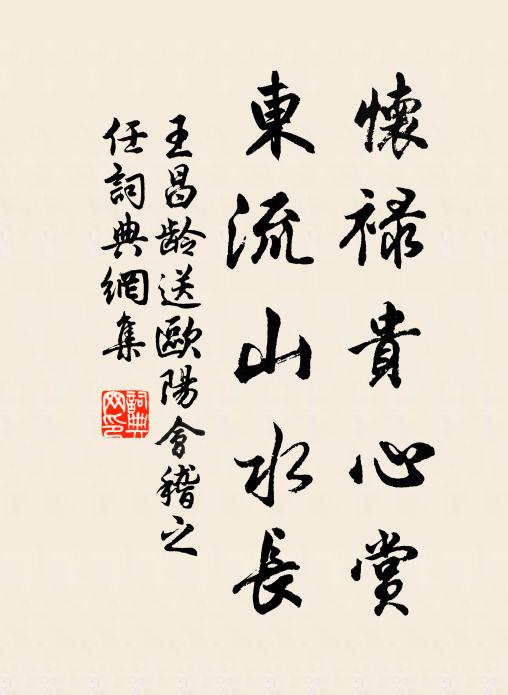 懷祿貴心賞
東流山水長
王昌龄送歐陽會稽之
任詞典網集
詞典
网印